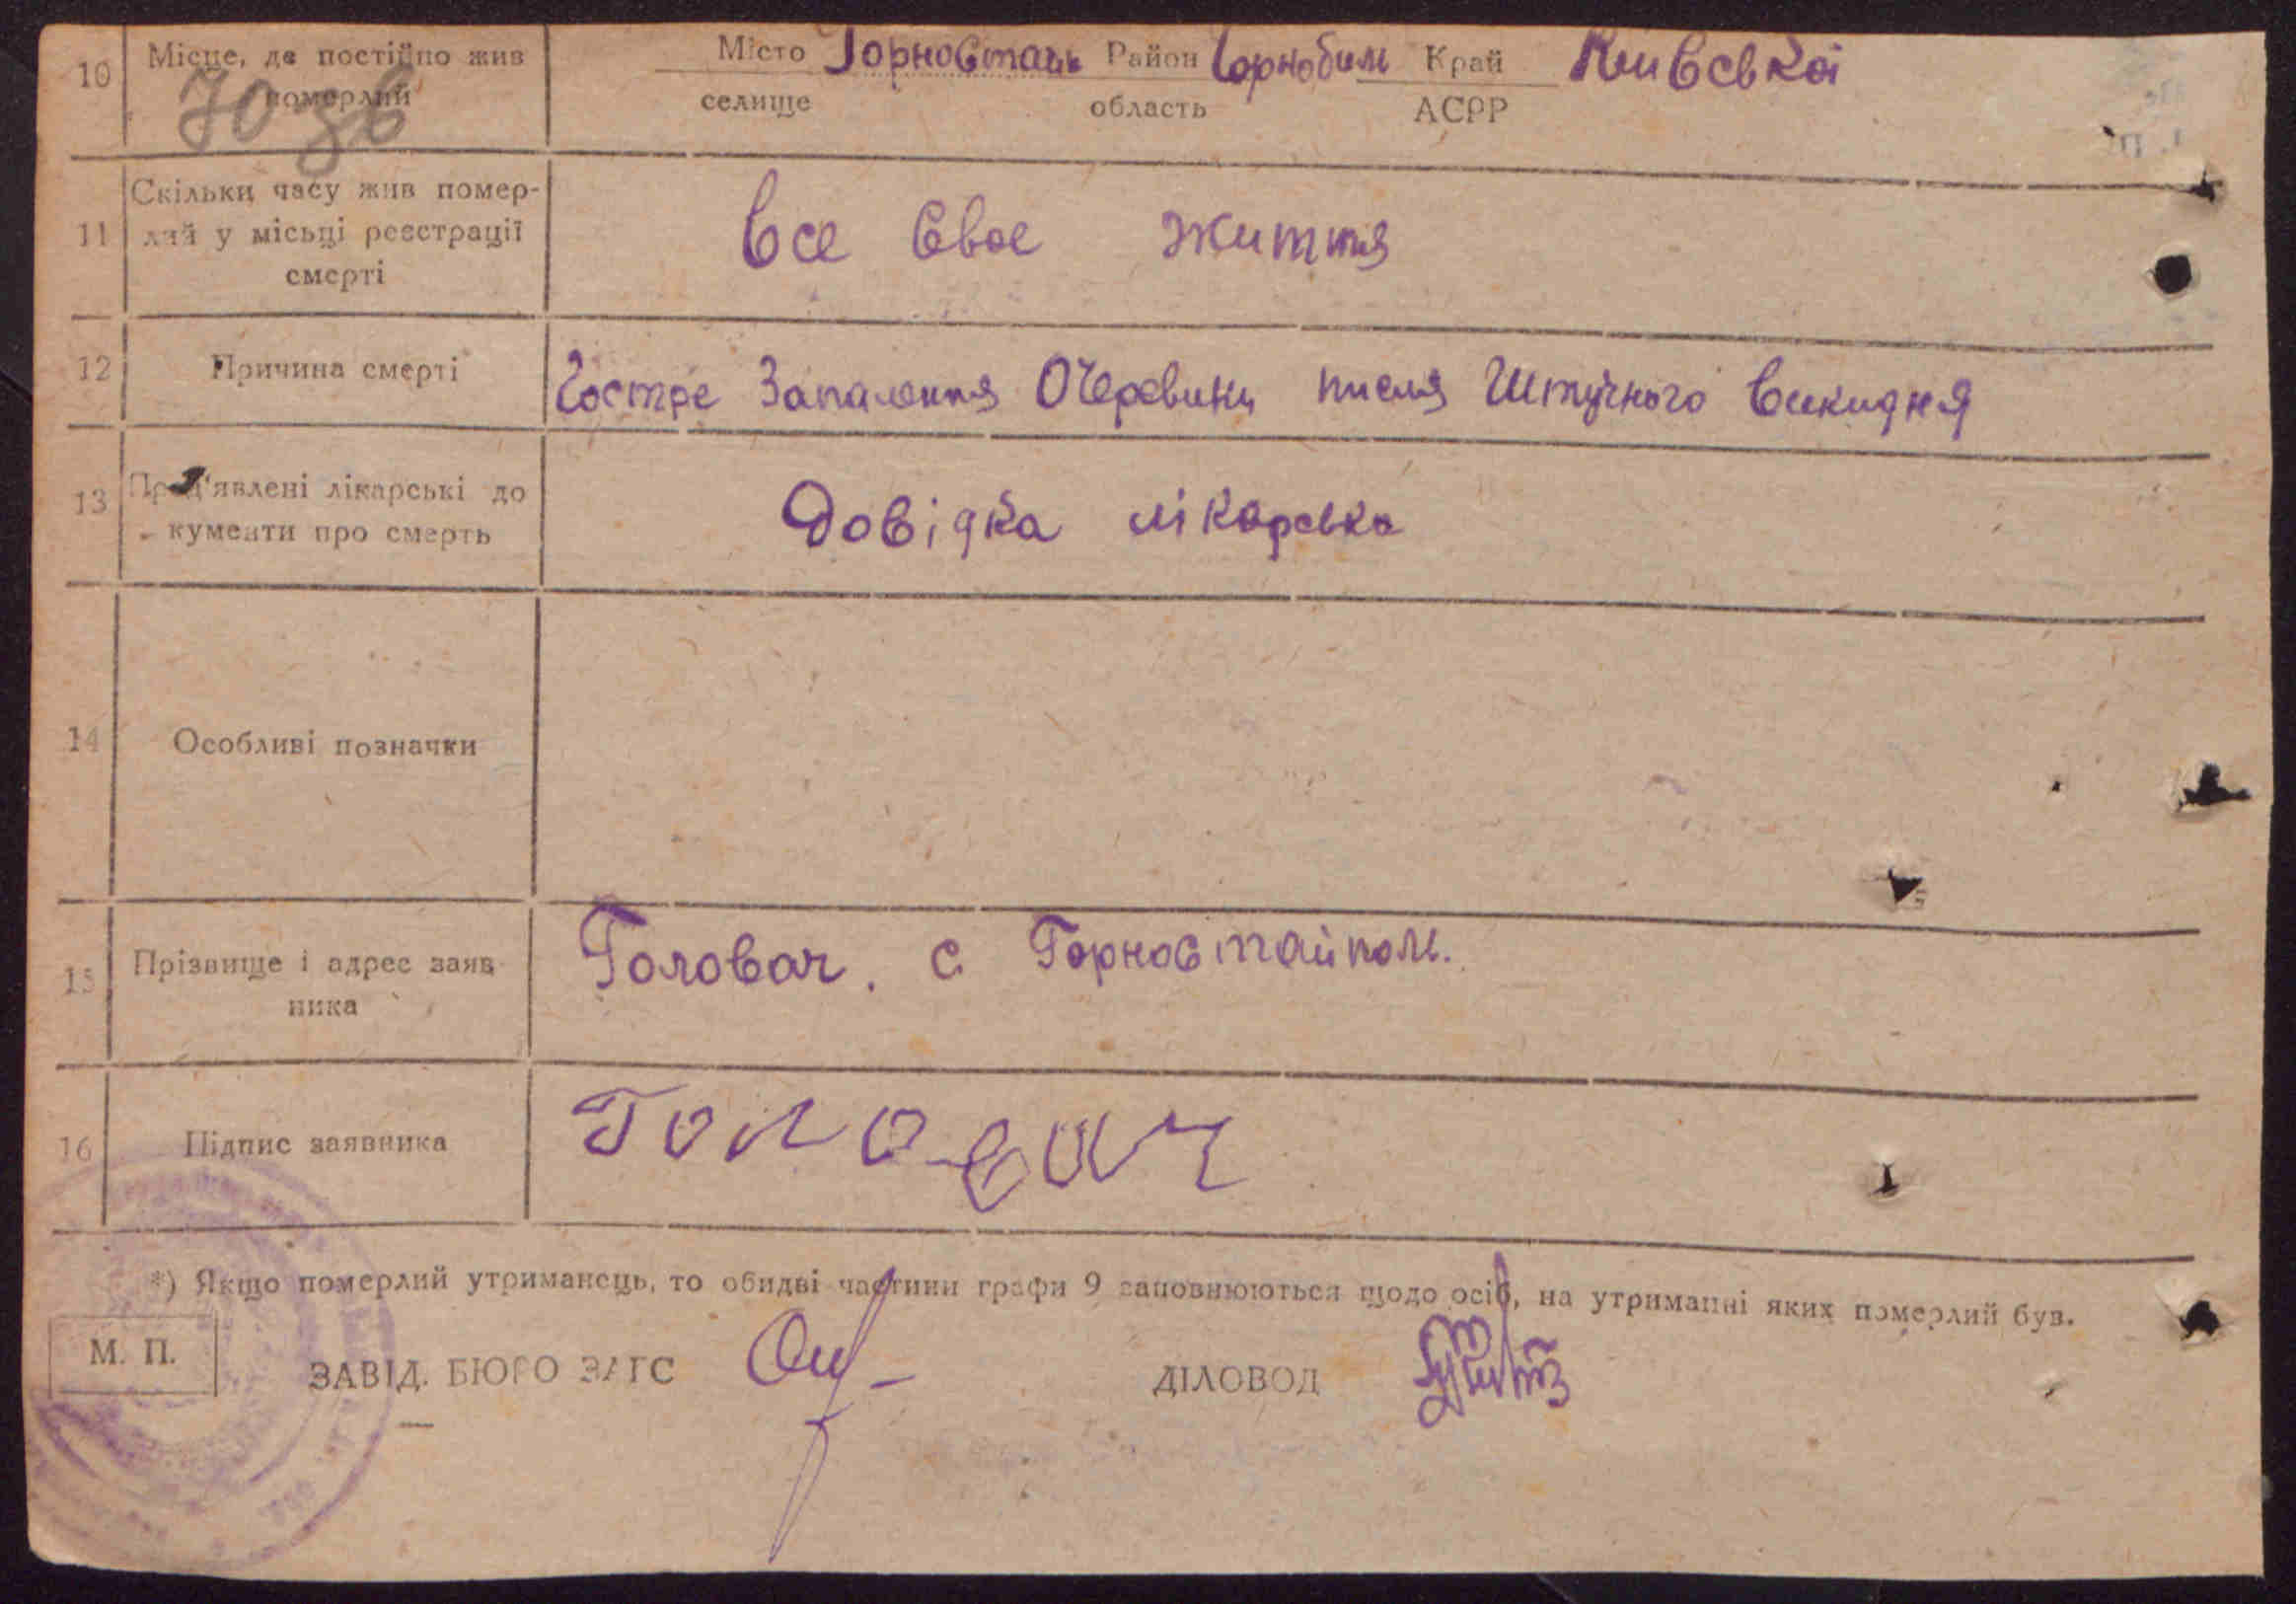 10 Місце, де постійно жив померлий Місто Горностай Район Чорнобиль Край Київської
селище область АСРР
11 Скільки часу жив помер-
лий у місці реєстрації
смерті
Все Своє життя
12 Причина смерті Гостре Запалення Очеревини писля Штучного Викидня
13 Пред'явлені лікарські до
кументи про смерть
Довідка лікарська
14 Особливі позначки
15 Прізвище і адрес заяв-
ника
Головач. с Горностайполь.
16 Підпис заявника Головач
*) Якщо померлий утриманець, то обидві частини графи 9 заповнюються щодо осіб, на утриманні яких померлий був.
М. П.
ЗАВІД. БЮРО ЗАГС ДІЛОВОД